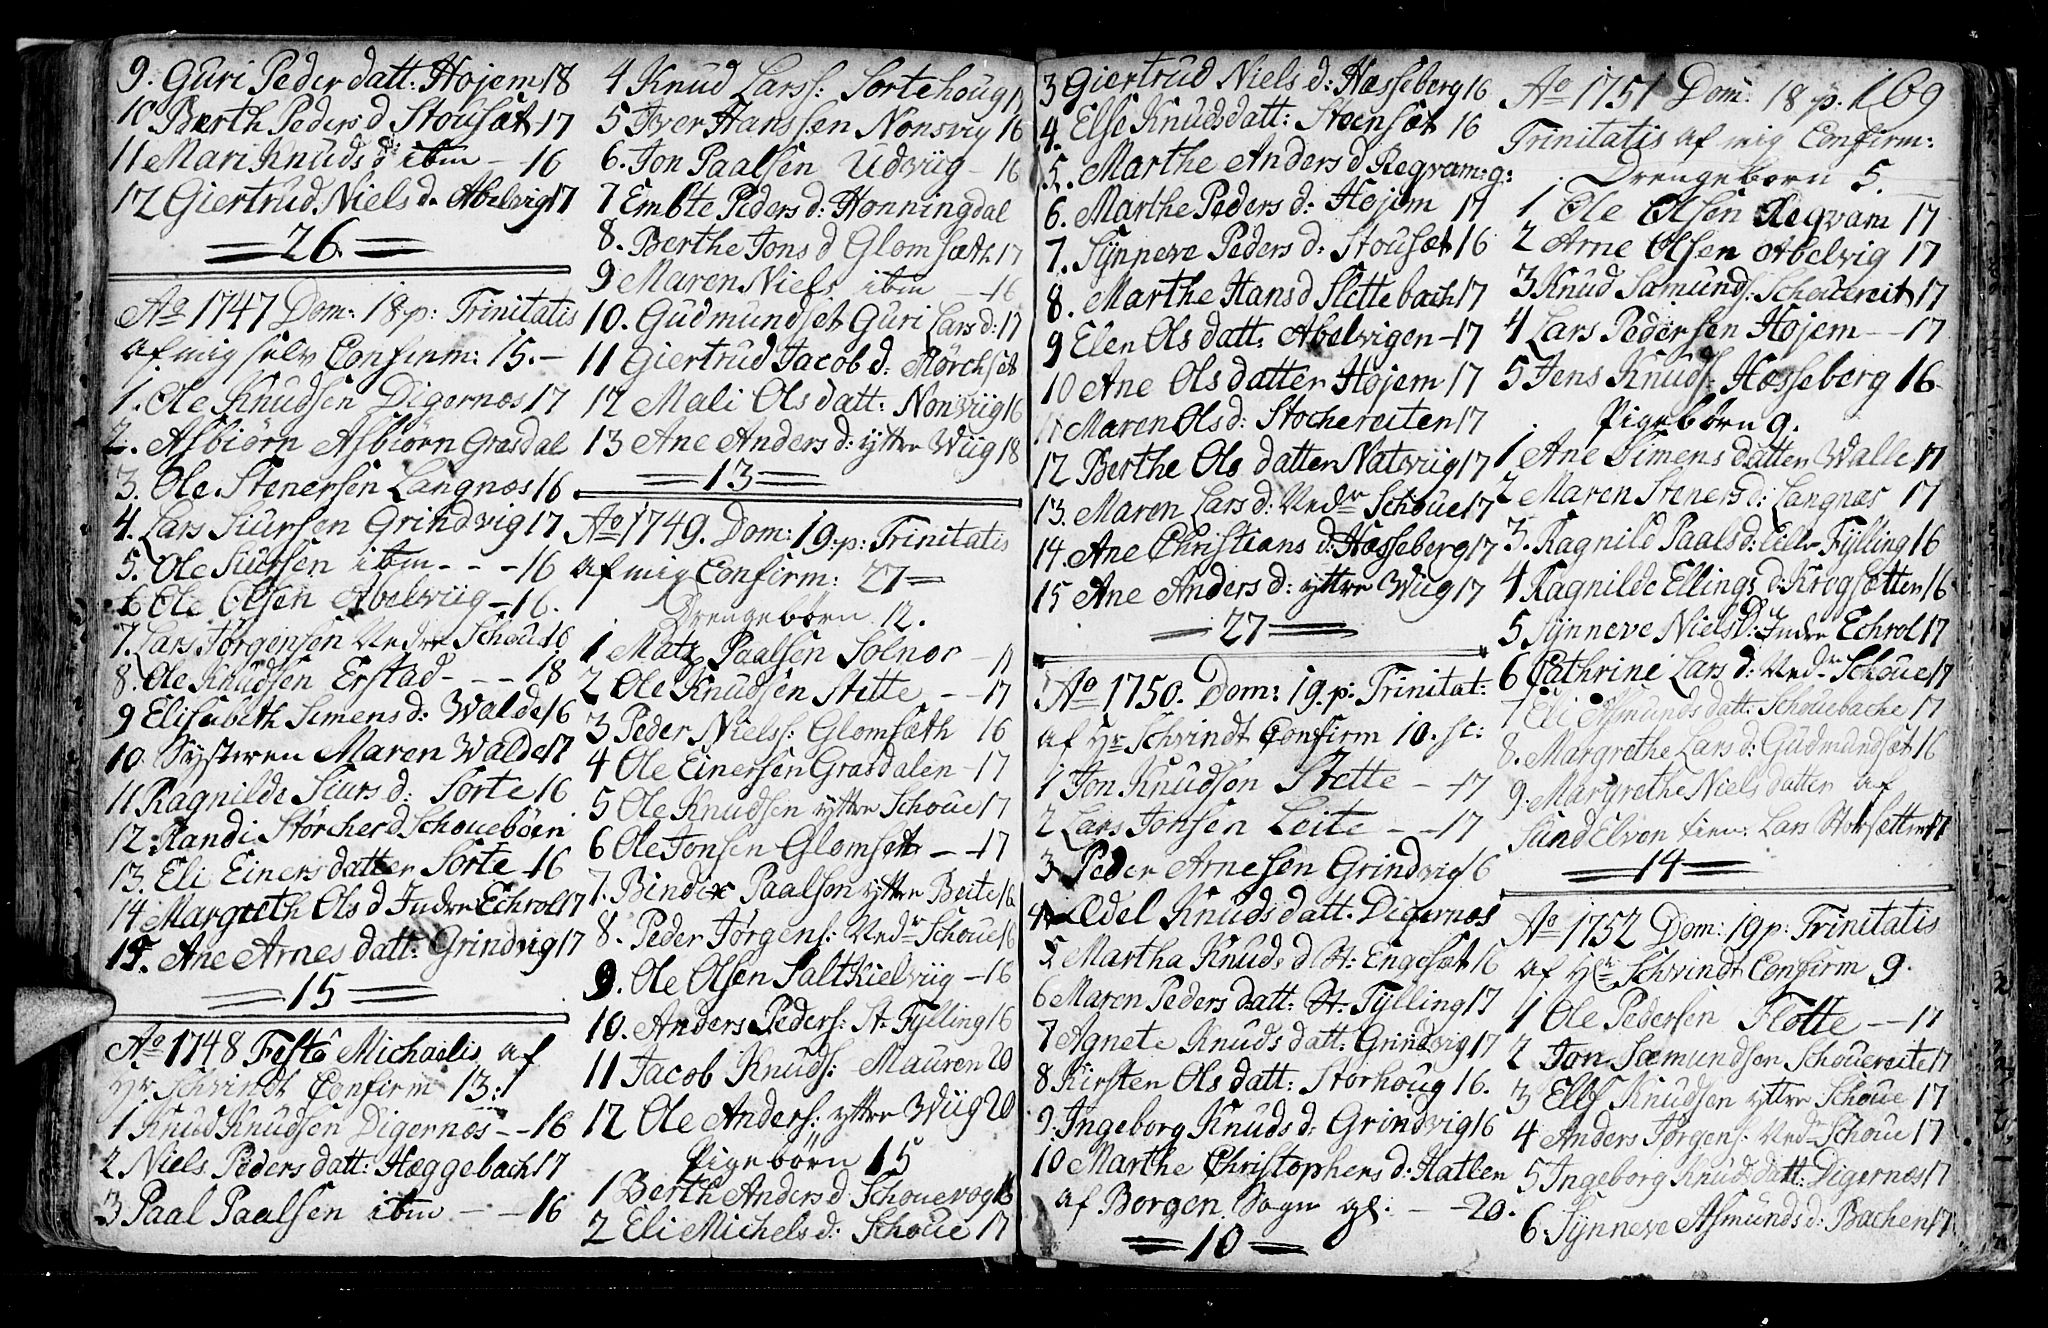 9. Guri Peder datt: Højem 18
10 Berth Peders d Stousæt 17
11 Mari Knuds d: ibm — 16
12 Giertrud Niels d. Abelvig 17
26
Ao 1747 Dom: 18 p: Trinitatis
af mig selv Confirm: 15. —
1. Ole Knudsen Digernæs 17
2. Asbiørn Asbiørn Grasdal
3. Ole Stenersen Langnæs 16
4. Lars Siursen Grindvig 17
5. Ole Siursen ibm - - - 16
6 Ole Olsen Abelviig — 16.
7. Lars Jørgensen Nedre Schoue 16
8. Ole Knudsen Erstad - - - 18
9 Elisabeth Simens d: Walde 16
10. Systeren Maren Walde 17
11 Ragnilde Siurs d: Sorte 16
12. Randi Størcher d Schouebøen
13. Eli Einers datter Sorte - 16
14 Margreth Ols d Indre Echrol 17
15. Ane Arnes datt: Grindvig 17
15
Ao 1748 Festo Michaelis af
Hr Schvindt Confirm 13:
1 Knud Knudsen Digernæs - - 16
2 Niels Peders datt: Hæggebach 17
3 Paal Paalsen ibm - - 16
4 Knud Larss: Sortehoug
5 Iver Hanssen Nonsvig 16
6. Jon Paalsen Udviig — 16
7 Embte Peders d: Honningdal
8. Berthe Jons d Glomsæth 17
9 Maren Niels ibm — 16
10. Gudmundsæt Guri Lars d: 17
11 Giertrud Jacob d: Mörchset
12 Mali Ols datt: Nonviig 16
13 Ane Anders d: yttre Wiig 18
13
Ao 1749. Dom: 19. p: Trinitatis
af mig Confirm: 27
Drengebörn 12.
1 Matz Paalsen Solnor —
2 Ole Knudsen Stette - - 17
3 Peder Nielss: Glomsæth 16
4 Ole Einersen Grasdalen - 17
5 Ole Knudsen yttre Schoue 17
6 Ole Jonsen Glomset - - 17
7. Bendix Paalsen yttre Beite 16
8. Peder Jørgens: Nedr Schoue 16
9. Ole Olsen Saltkielviig - 16
10. Anders Peders: St. Fylling 16
11 Jacob Knuds: Mauren 20
12 Ole Anders: yttre Wiig 20
Pigebörn 15
1 Berth Anders d. Schouevog 18
2 Eli Michels d: Schoue 17
3 Giertrud Niels d: Hæsseberg 16
4. Else Knuds datt: Steensæt 16
5. Marthe Anders d Regvam: g:
6. Marthe Peders d: Højem 17
7. Synneve Peders d: Stousæt 16
8. Marthe Hans d Slettebach 17
9 Elen Ols datt: Abelvigen - 17
10 Ane Ols datter Højem 17
11 Maren Ols d: Stochereiten 17
12 Berthe Ols datter Natviig 17
13. Maren Lars d: Nedr Schoue 17
14 Ane Christians d: Hæsseberg 17
15 Ane Anders d: yttre Wiig 17
27
Ao 1750. Dom: 19. p: Trinitat:
af Hr Schvindt Confirm 10. sc:
1 Jon Knudsøn Stette - - 17
2 Lars Jonsen Leite - - 17
3 Peder Arnesen Grindvig 16
4 Edel Knuds datt. Digernæs
5 Martha Knuds d St: Engesæt 16
6 Maren Peders datt: St: Fylling 17
7 Agnete Knuds datt: Grindvig 17
8 Kirsten Ols datt: Storhoug 16.
9. Ingeborg Knuds d: Grindvig 16
10 Marthe Christophers d: Hatlen
af Borgen Sogn gl. - - 20.
10
169
Ao 1751 Dom: 18 p:
Trinitatis af mig Confirm:
Drengebørn 5.
1 Ole Olsen Regvam 17
2 Arne Olsen Abelvig 17
3 Knud Samunds: Schouereit 17
4 Lars Pedersen Højem - - 17
5 Jens Knuds: Hæsseberg 16
Pigebörn 9.
1 Ane Simens datter Walle 17
2 Maren Steners d: Langnæs 17
3. Ragnild Paals d: Lille Fylling 16
4 Ragnilde Ellings d: Krogsætter 16
5 Synneve Niels D: Indre Echrol 17
6 Cathrine Lars d: Nedr Schoue 17
7 Eli Asmunds datt: Schouebache 17
8. Margrethe Lars d: Gudmundsæt 16
9. Margrethe Niels datter af
Sund Elven tien: Lars Storsætter 17
14
Ao 1752 Dom: 19 p: Trinitatis
af Hr Schvindt Confirm 9.
1 Ole Pedersen Flotte - - 17
2 Jon Sæmundsen Schouereite 17
3 Ells Knudsen yttre Schoue 17
4 Anders Jørgens: Nedr Schoue 17
5 Ingeborg Knuds datt: Digernæs 17
6. Synneve Asmunds d: Bachen 17